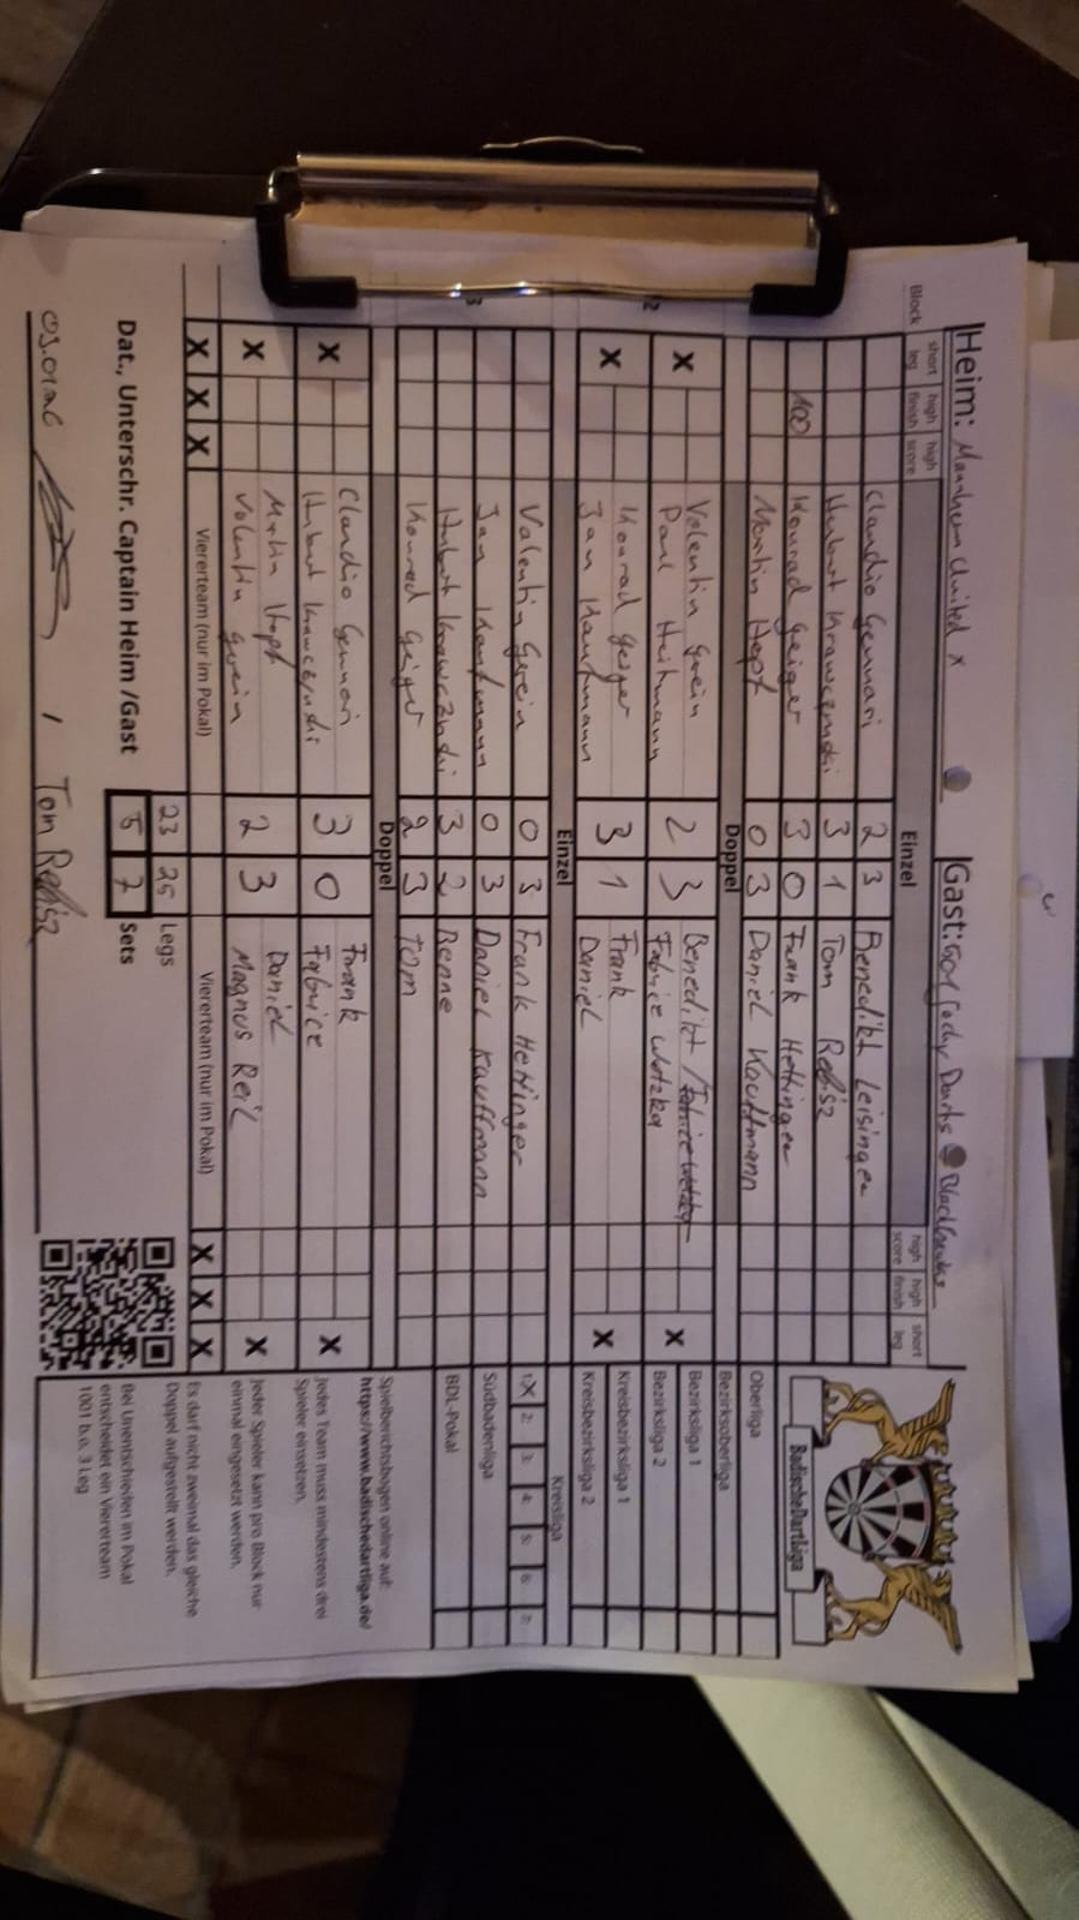 Heim: Mannheim United x Gast: Gol Gody Darts Blackbirds
Block short leg high finish high score Einzel high score high finish short leg
Claudio Gennari 2 3 Benedikt Leisinger
Hubert Krawczynski 3 1 Tom Rebisz
100 Konrad Geiger 3 0 Frank Hettinger
Martin Hopf 0 3 Daniel Kauffmann
Doppel
Valentin Gwein 2 3 Benedikt /
X Paul Heitmann Fabrice Wotzka X
Konrad Geiger 3 1 Frank
X Jan Kaufmann Daniel X
Einzel
Valentin Gwein 0 3 Frank Hettinger
Jan Kaufmann 0 3 Daniel Kauffmann
Hubert Krawczynski 3 2 Benne
Konrad Geiger 2 3 Tom
Doppel
Claudio Gennari 3 0 Frank
X Hubert Krawczynski Fabrice X
Martin Hopf 2 3 Daniel
X Valentin Gwein Magnus Reil X
X X X Viererteam (nur im Pokal) Viererteam (nur im Pokal) X X X
23 25 Legs
Dat., Unterschr. Captain Heim /Gast 5 7 Sets
/ Tom Rebisz
BadischeDartLiga
Oberliga
Bezirksoberliga
Bezirksliga 1
Bezirksliga 2
Kreisbezirksliga 1
Kreisbezirksliga 2
Kreisliga
1: X 2: 3: 4: 5: 6: 7:
Südbadenliga
BDL-Pokal
Spielberichtsbogen online auf:
https://www.badischedartliga.de/
Jedes Team muss mindestens drei
Spieler einsetzen.
Jeder Spieler kann pro Block nur
einmal eingesetzt werden.
Es darf nicht zweimal das gleiche
Doppel aufgestellt werden.
Bei Unentschieden im Pokal
entscheidet ein Viererteam
1001 b.o. 3 Leg